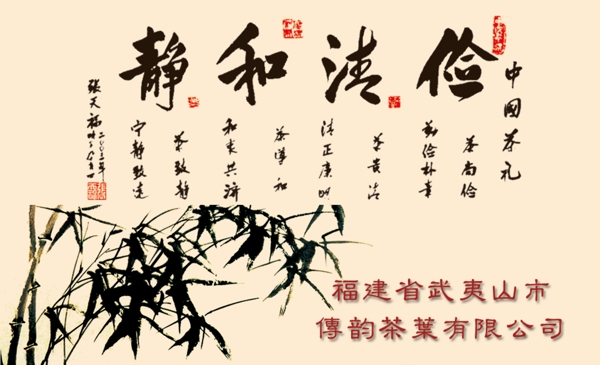 中國茶礼
俭清和静
茶尚俭
勤俭朴素
茶贵清
清正廉明
茶導和
和衷共济
茶致静
宁静致远
张天福
二〇〇二年
福建省武夷山市
傳韵茶葉有限公司